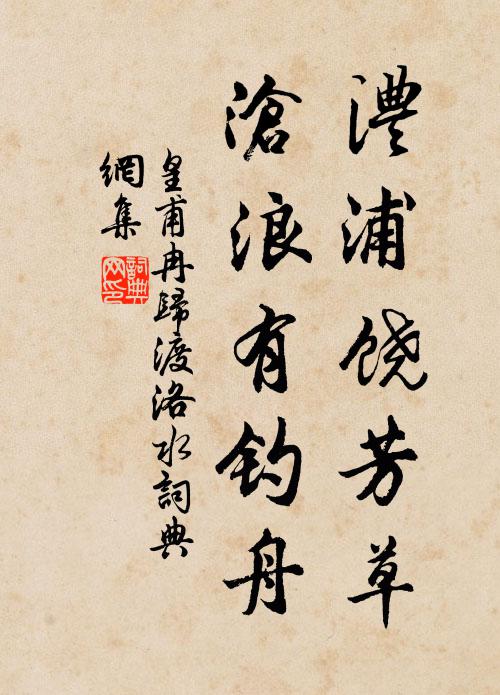 澧浦饶芳草
滄浪有钓舟
皇甫冉歸渡洛水詞典
網集
詞典
网印